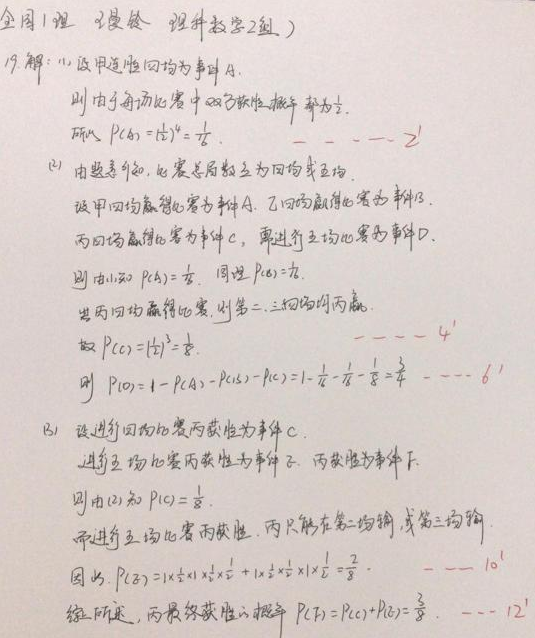 全国1理 理科数学2组)
19.解:(1)设甲连胜四场为事件A.
则由于每场比赛中双方获胜概率都为1/2.
所以 P(A)=(1/2)^4=1/16. - - - - - 2'
(2) 由题意可知,比赛总局数应为四场或五场.
设甲四场赢得比赛为事件A. 乙四场赢得比赛为事件B.
丙四场赢得比赛为事件C, 需进行五场比赛为事件D.
则由(1)知 P(A)=1/16. 同理P(B)=1/16.
当丙四场赢得比赛,则第二.三.四场均丙赢.
故 P(C)=(1/2)^3=1/8. - - - - 4'
则 P(D)=1-P(A)-P(B)-P(C)=1-1/16-1/16-1/8=3/4 - - - - 6'
(3) 设进行四场比赛丙获胜为事件C.
进行五场比赛丙获胜为事件E. 丙获胜为事件F.
则由(2)知 P(C)=1/8.
而进行五场比赛丙获胜.丙只能在第二场输,或第三场输
因此.P(E)=1×1/2×1×1/2×1/2+1×1/2×1/2×1×1/2=2/8. - - - 10'
综上所述,丙最终获胜的概率 P(F)=P(C)+P(E)=3/8. - - - 12'